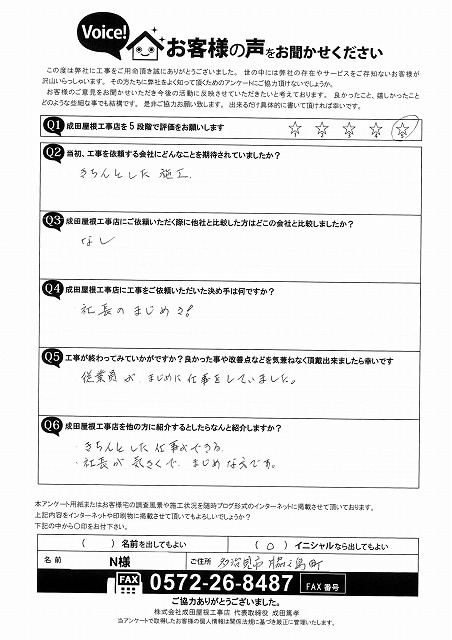 Voice! お客様の声をお聞かせください
この度は弊社に工事をご用命頂き誠にありがとうございました。世の中には弊社の存在やサービスをご存知ないお客様が
沢山いらっしゃいます。その方たちに弊社をよく知って頂くためのアンケートにご協力頂けないでしょうか。
お客様のご意見をお聞かせいただき今後の活動に反映させていただきたいと考えております。良かったこと、嬉しかったこと
どのような些細な事でも結構です。是非ご協力お願い致します。出来るだけ具体的に書いて頂ければ幸いです。
Q1 成田屋根工事店を5段階で評価をお願いします
Q2 当初、工事を依頼する会社にどんなことを期待されていましたか?
きちんとした施工.
Q3 成田屋根工事店にご依頼いただく際に他社と比較した方はどこの会社と比較しましたか?
なし
Q4 成田屋根工事店に工事をご依頼いただいた決め手は何ですか?
社長のまじめさ!
Q5 工事が終わってみていかがですか?良かった事や改善点などを気兼ねなく頂戴出来ましたら幸いです
従業員が、まじめに仕事をしていました。
Q6 成田屋根工事店を他の方に紹介するとしたらなんと紹介しますか?
・きちんとした仕事ができる
・社長が気さくで、まじめな人です。
本アンケート用紙またはお客様宅の調査風景や施工状況を随時ブログ形式のインターネットに掲載させて頂いております。
上記内容をインターネットや印刷物に掲載させて頂いてもよろしいでしょうか?
下記の中から〇印をお付け下さい。
( ) 名前を出してもよい ( ○ ) イニシャルなら出してもよい
名前 N様 ご住所 多治見市脇之島町
FAX 0572-26-8487 FAX番号
ご協力ありがとうございました。
株式会社成田屋根工事店 代表取締役 成田篤孝
当アンケートで取得したお客様の個人情報は関係法規に基づき厳正に管理いたします。